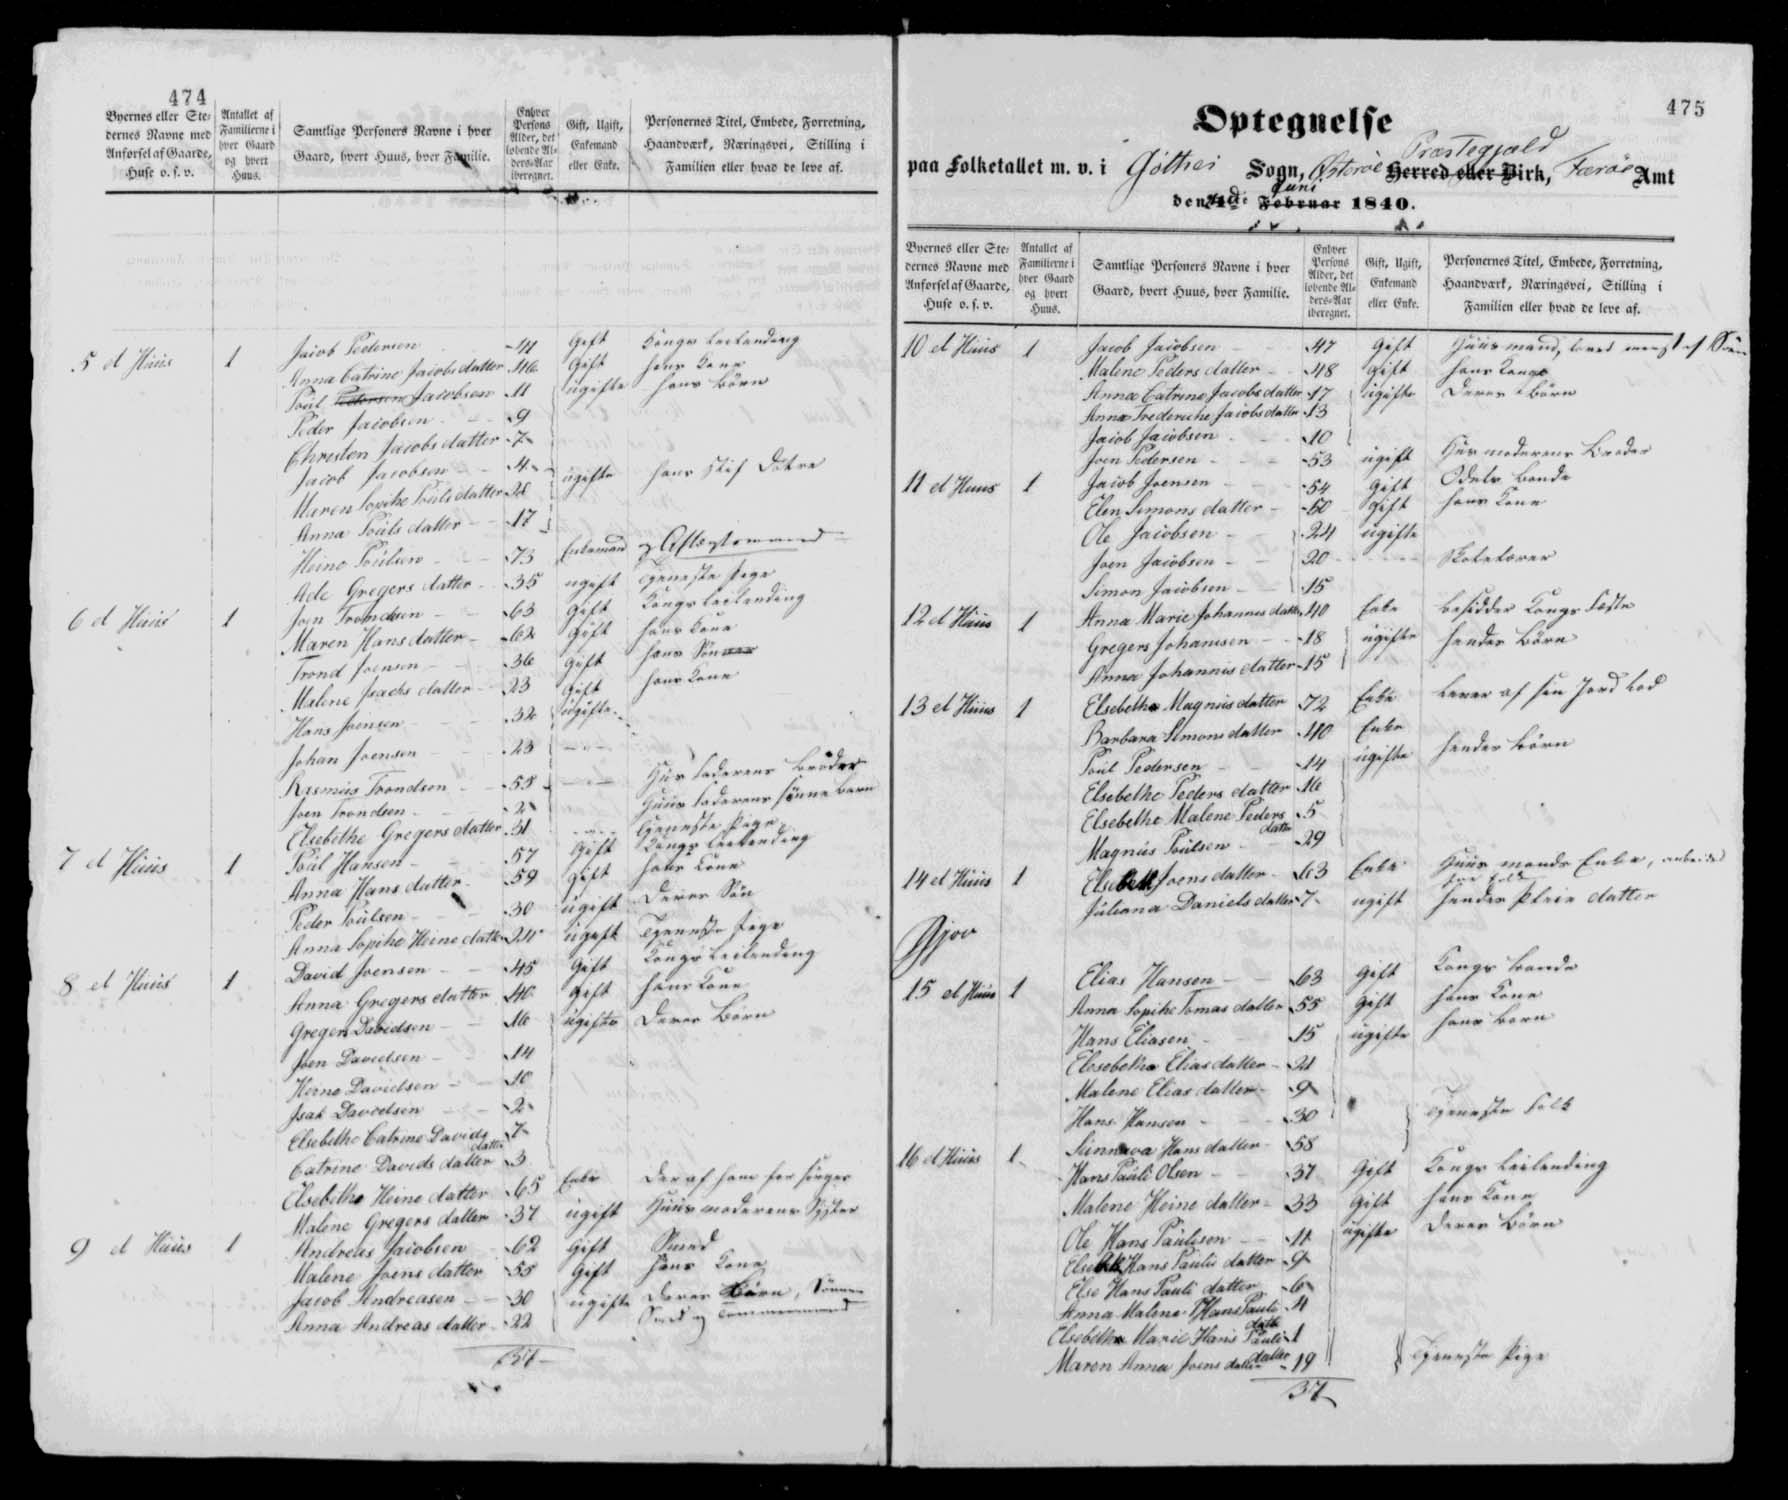 474
Byernes eller Ste-
dernes Navne med
Anførsel af Gaarde,
Huse o. s. v.
Antallet af
Familierne i
hver Gaard
og hvert
Huus.
Samtlige Personers Navne i hver
Gaard, hvert Huus, hver Familie.
Enhver
Persons
Alder, det
løbende Al-
ders-Aar
iberegnet.
Gift, Ugift,
Enkemand
eller Enke.
Personernes Titel, Embede, Forretning,
Haandværk, Næringsvei, Stilling i
Familien eller hvad de leve af.
5 et Huus 1 Jacob Pedersen 44 Gift Kongs Leilending
Anna Catrine Jacobs datter 46 Gift hans Kone
Poul Pedersen Jacobsen 11 ugifte hans Børn
Peder Jacobsen 9
Christen Jacobs datter 7
Jacob Jacobsen 4
Maren Sophie Pouls datter 28 ugifte hans Stif døtre
Anna Pouls datter 17
Heine Poulsen 73 Enkemand og Aftægtsmand
Ade Gregers datter 35 ugift Tjeneste Pige
6 et Huus 1 Joen Trondsen 63 Gift Kongs Leilending
Maren Hans datter 62 Gift hans Kone
Trond Joensen 36 Gift hans Søn
Malene Jsachs datter 23 Gift hans Kone
Hans Joensen 32 ugifte
Johan Joensen 23
Rasmus Trondsen 58 Huus faderens Broder
Joen Trondsen 2 Huus faderens sønne barn
Elsebethe Gregers datter 31 Tjeneste Pige
7 et Huus 1 Poul Hansen 57 Gift Kongs Leilending
Anna Hans datter 59 Gift hans Kone
Peder Poulsen 30 ugift Deres Søn
Anna Sophie Heine datter 24 ugift Tjeneste Pige
8 et Huus 1 David Joensen 45 Gift Kongs Leilending
Anna Gregers datter 40 Gift hans Kone
Gregers Davidsen 16 ugifte Deres Børn
Joen Davidsen 14
Heine Davidsen 10
Jsak Davidsen 2
Elsebethe Catrine Davids datter 7
Catrine Davids datter 3
Elsebethe Heine datter 65 Enke Der af ham forsørges
Malene Gregers datter 37 ugift Huusmoderens Syster
9 et Huus 1 Andreas Jacobsen 62 Gift Smed
Malene Joens datter 55 Gift hans Kone
Jacob Andreasen 30 ugifte Deres Børn, Sønnen
Anna Andreas datter 22 Smed og Tømmermand
37
475
Optegnelse
paa Folketallet m. v. i Gøthes Sogn, Østerøe Præstegjeld Herred eller Birk, Færøe Amt
den 1ste Juni Februar 1840.
Byernes eller Ste-
dernes Navne med
Anførsel af Gaarde,
Huse o. s. v.
Antallet af
Familierne i
hver Gaard
og hvert
Huus.
Samtlige Personers Navne i hver
Gaard, hvert Huus, hver Familie.
Enhver
Persons
Alder, det
løbende Al-
ders-Aar
iberegnet.
Gift, Ugift,
Enkemand
eller Enke.
Personernes Titel, Embede, Forretning,
Haandværk, Næringsvei, Stilling i
Familien eller hvad de leve af.
10 et Huus 1 Jacob Jacobsen 47 Gift Huusmand, lever mest af Søen
Malene Peders datter 48 Gift hans Kone
Anna Catrine Jacobs datter 17 ugifte Deres Børn
Anna Fredereche Jacobs datter 13
Jacob Jacobsen 10
Joen Pedersen 53 ugift Husmoderens Broder
11 et Huus 1 Jacob Joensen 54 Gift Odels bonde
Elen Simons datter 50 Gift hans Kone
Ole Jacobsen 24 ugifte
Joen Jacobsen 20 Skolelærer
Simon Jacobsen 15
12 et Huus 1 Anna Marie Johannes datter 40 Enke besidder Kongs Fæste
Gregers Johansen 18 ugifte hendes Børn
Anna Johannis datter 15
13 et Huus 1 Elsebethe Magnus datter 72 Enke Lever af sin Jord Lod
Barbara Simons datter 40 Enke
Poul Pedersen 14 ugifte hendes Børn
Elsebethe Peders datter 16
Elsebethe Malene Peders datter 5
Magnus Poulsen 29
14 et Huus 1 Elsebeth Joens datter 63 Enke Huus mands Enke, arbeider
Juliana Daniels datter 7 ugift hendes Pleie datter
Gjov
15 et Huus 1 Elias Hansen 63 Gift Kongs bonde
Anna Sophie Tomas datter 55 Gift hans Kone
Hans Eliasen 15 ugifte hans Børn
Elsebethe Elias datter 21
Malene Elias datter 9
Hans Hansen 30 Tjeneste Folk
Sunneva Hans datter 58
16 et Huus 1 Hans Pauli Olsen 37 Gift Kongs Leilending
Malene Heine datter 33 Gift hans Kone
Ole Hans Paulisen 11 ugifte Deres Børn
Elsebeth Hans Paulis datter 9
Else Hans Pauli datter 6
Anna Malene Hans Pauli datter 4
Elsebethe Marie Hans Pauli datter 1
Maren Anna Joens datter 19 Tjeneste Pige
37